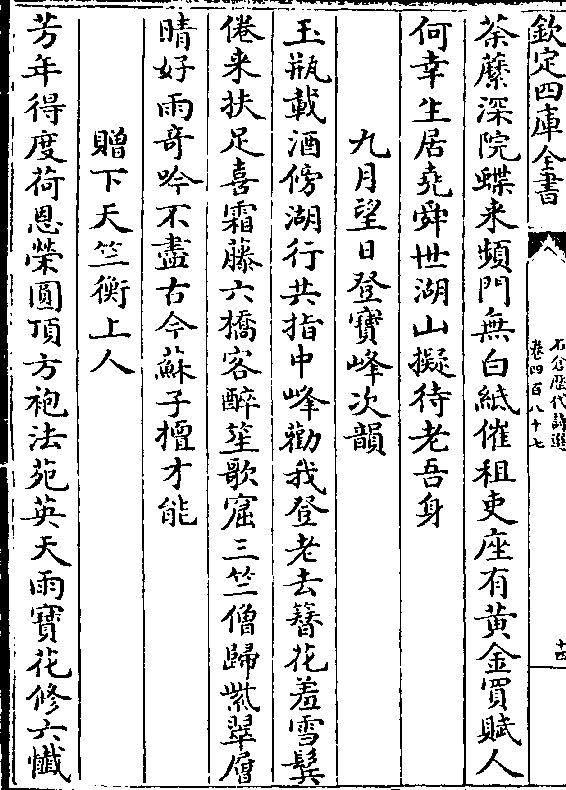 欽定四庫全書
石倉歷代詩選
卷四百八十七
十四
荼蘼深院蝶来頻門無白紙催租吏座有黄金買賦人
何幸生居堯舜世湖山擬待老吾身
九月望日登寶峰次韻
玉瓶載酒傍湖行共指中峰勸我登老去簪花羞雪鬓
倦来扶足喜霜藤六橋客醉笙歌窟三竺僧歸紫翠層
晴好雨奇吟不盡古今蘇子擅才能
贈下天竺衡上人
芳年得度荷恩榮圓頂方袍法苑英天雨寶花修六懺